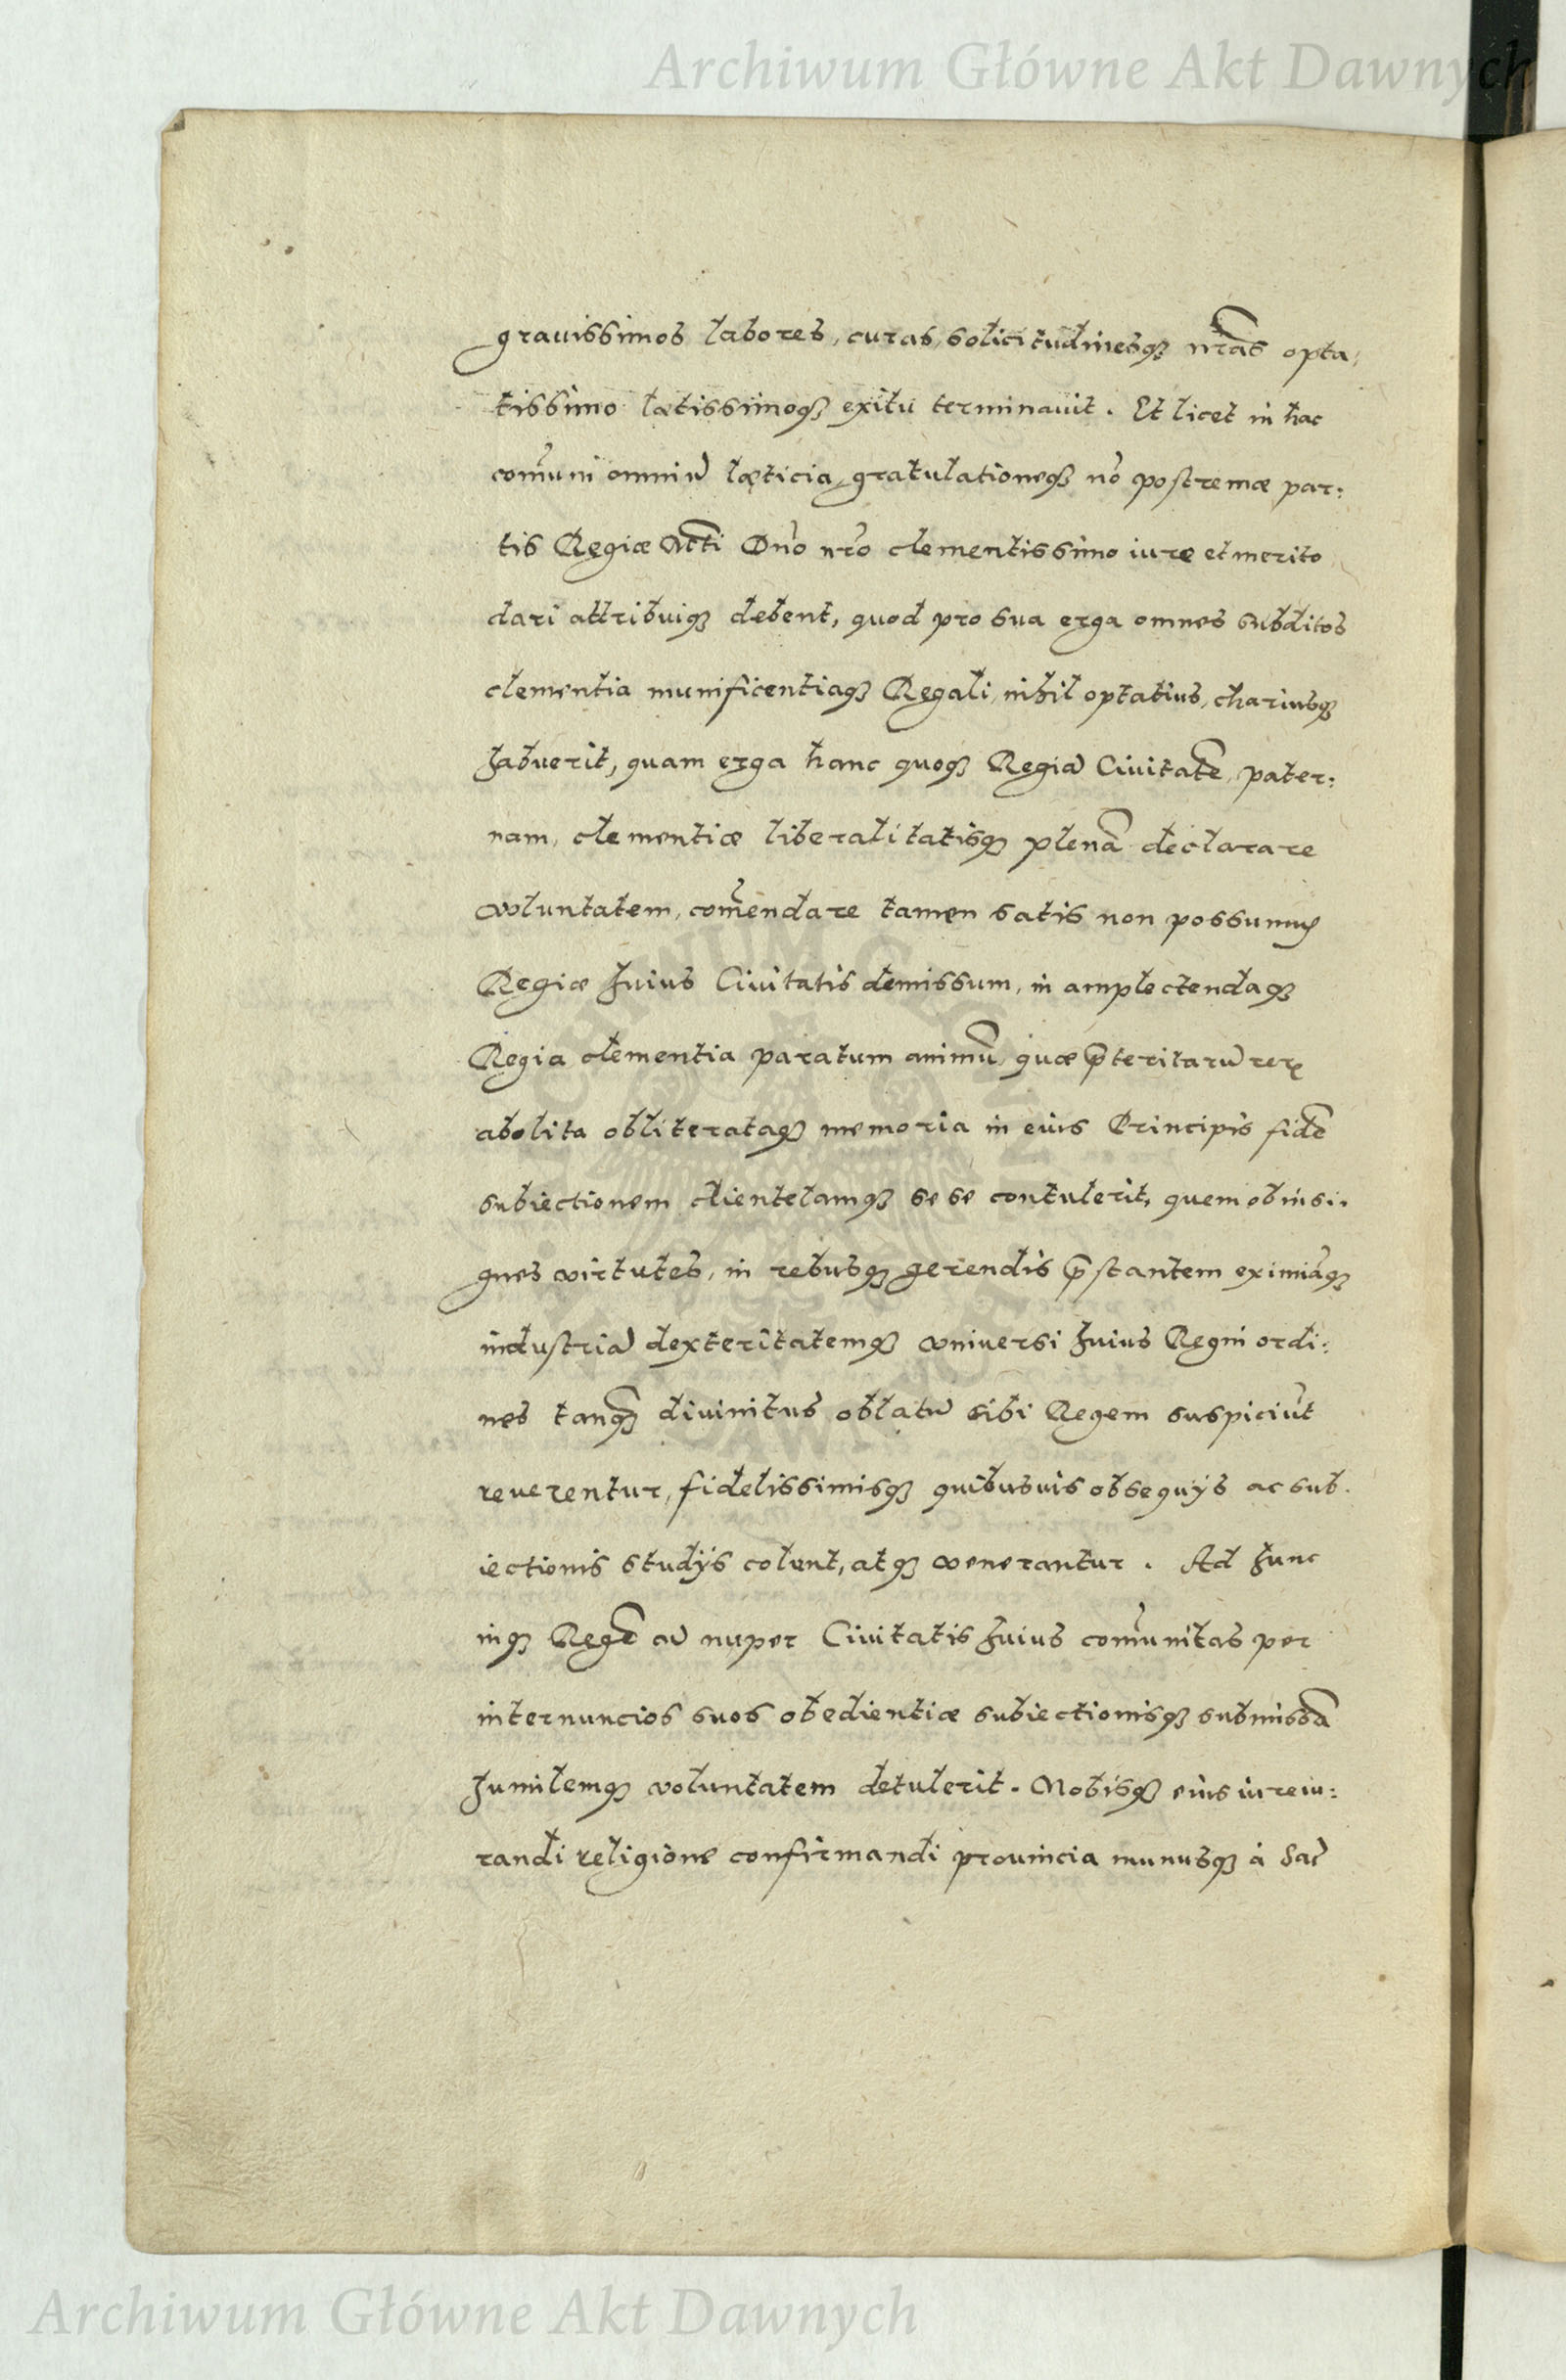 Archiwum Główne Akt Dawnych
grauissimos labores, curas, solicitudinesq; nr̃as opta,
tissimo lætissimoq; exitu terminauit. Et licet in hac
com̃uni omniũ læticia, gratulationeq; nõ postremæ par:
tis Regiæ Mtti Dño nr̃o clementissimo iure et merito
dari attribuiq; debent, quod pro sua erga omnes subditos
clementia munificentiaq; Regali, nihil optatius, chariusq;
habuerit, quam erga hanc quoq; Regiã Ciuitatẽ, pater:
nam, clementiæ liberalitatisq; plenã declarare
voluntatem, com̃endare tamen satis non possumus
Regiæ huius Ciuitatis demissum, in amplectendaq;
Regia clementia paratum animũ, quæ p̃teritarũ rerꝝ
abolita obliterataq; memoria in eius Principis fidẽ
subiectionem clientelamq; se se contulerit, quem ob insi..
gnes virtutes, in rebusq; gerendis p̃stantem eximiãq;
industriã dexteritatemq; vniuersi huius Regni ordi:
nes tanq̃ diuinitus oblatũ sibi Regem suspiciũt
reuerentur, fidelissimisq; quibusuis obsequijs ac sub.
iectionis studijs colunt, atq; venerantur. Ad hunc
inq; Regẽ cũ nuper Ciuitatis huius com̃unitas per
internuncios suos obedientiæ subiectionisq; submissã
humilemq; voluntatem detulerit. Nobisq; eius iureiu:
randi religione confirmandi prouincia munusq; à Sac̃
Archiwum Główne Akt Dawnych